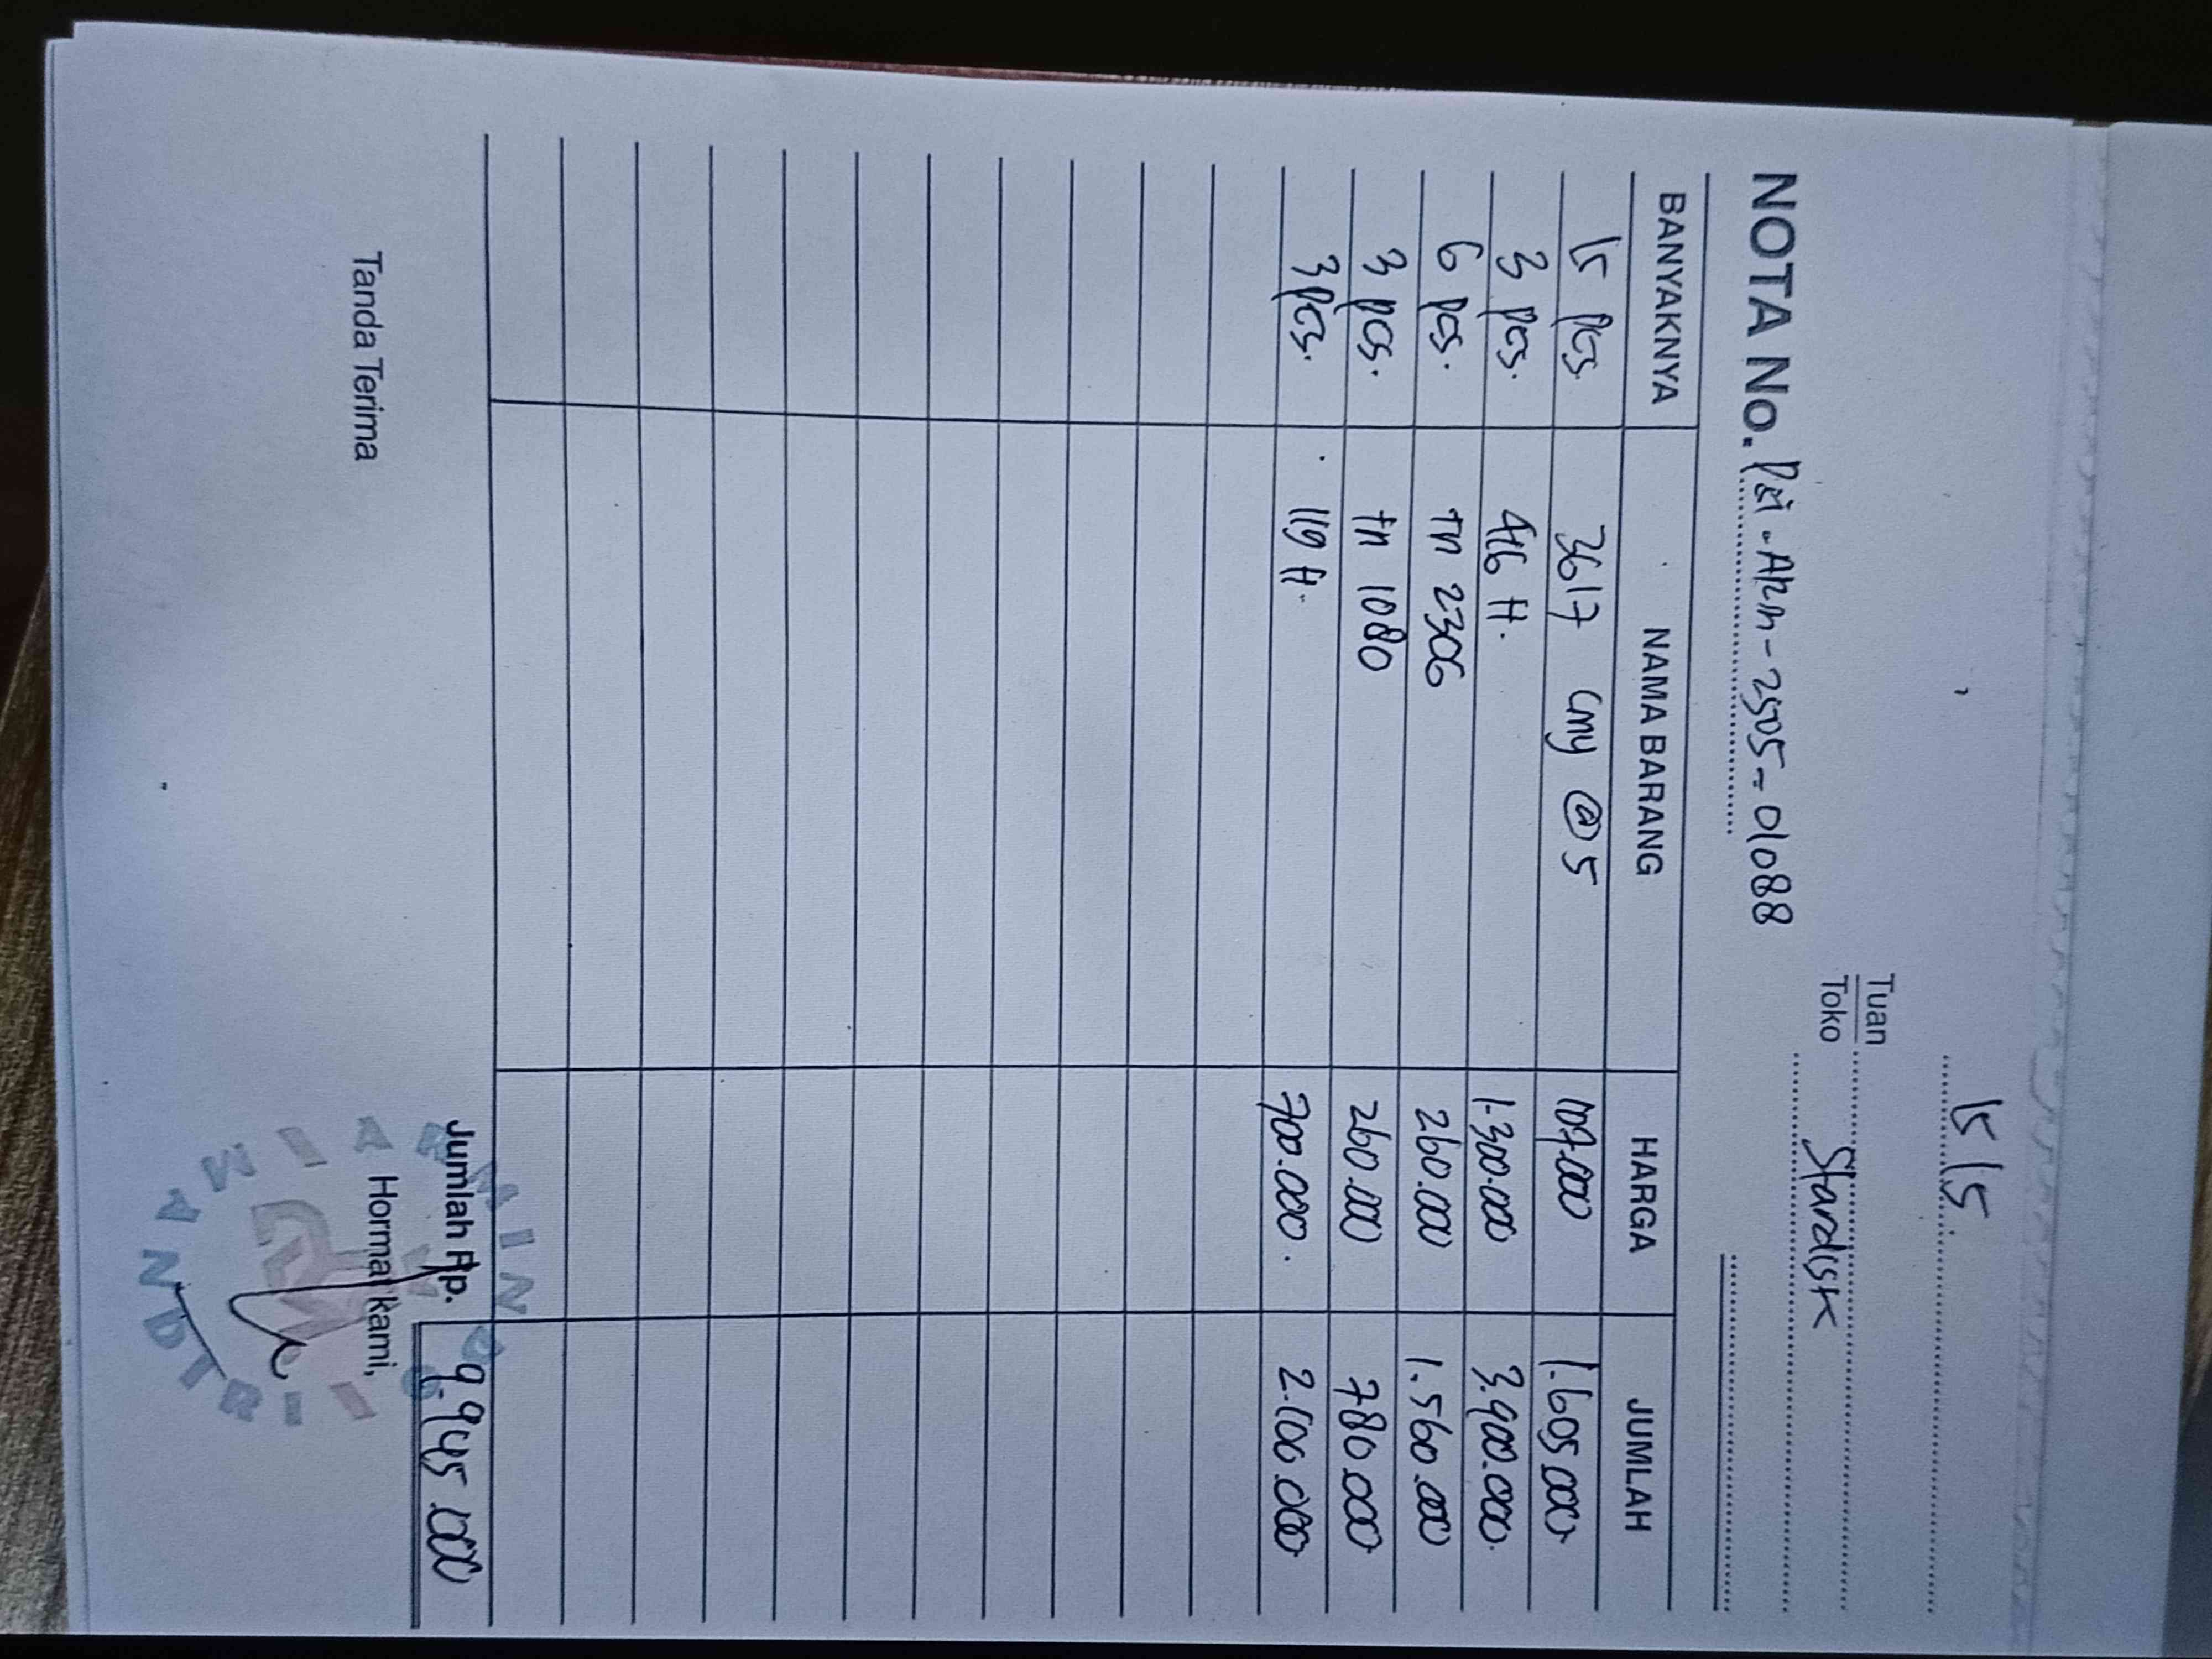 15/5
Tuan
Toko Stardisk
NOTA No. PSI-ARM-2505-01088
BANYAKNYA NAMA BARANG HARGA JUMLAH
15 pcs. 3617 cmy @ 5 107.000 1.605.000
3 pcs. 416 H. 1.300.000 3.900.000
6 pcs. tn 2306 260.000 1.560.000
3 pcs. tn 1080 260.000 780.000
3 pcs. 119 H. 700.000. 2.100.000
Jumlah Rp. 9.945.000
Tanda Terima Hormat kami,
MANDIRI